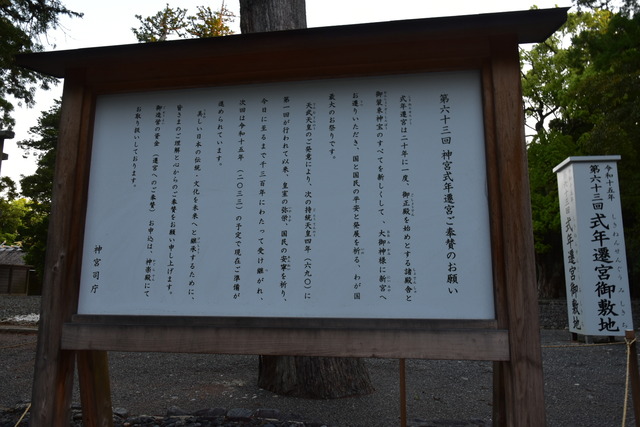 第六十三回 神宮式年遷宮ご奉賛のお願い
式年遷宮は二十年に一度、御正殿を始めとする諸殿舎と
御装束神宝のすべてを新しくして、大御神様に新宮へ
お遷りいただき、国と国民の平安と発展を祈る、わが国
最大のお祭りです。
天武天皇のご発意により、次の持統天皇四年（六九〇）に
第一回が行われて以来、皇室の弥栄、国民の安寧を祈り、
今日に至るまで千三百年にわたって受け継がれ、
次回は令和十五年（二〇三三）の予定で現在ご準備が
進められています。
美しい日本の伝統、文化を未来へと継承するために、
皆さまのご理解と心からのご奉賛をお願い申し上げます。
御造営の資金（遷宮へのご奉賛）お申込は、神楽殿にて
お取り扱いしております。
神宮司庁
令和十五年
第六十三回 式年遷宮御敷地
しきねんせんぐう み しきち
式年遷宮御敷地